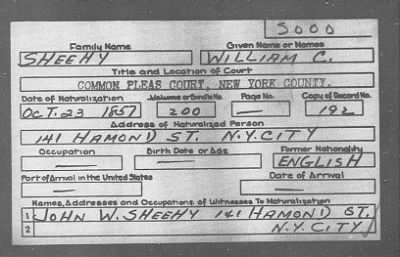 S000
Family Name Given Name or Names
SHEEHY WILLIAM C.
Title and Location of Court
COMMON PLEAS COURT, NEW YORK COUNTY.
Date of Naturalization Volume or Bundle No. Page No. Copy of Record No.
OCT. 23 1857 200 — 192
Address of Naturalized Person
141 HAMOND ST. N.Y. CITY
Occupation Birth Date or Age Former Nationality
— — ENGLISH
Port of Arrival in the United States Date of Arrival
— —
Names, Addresses and Occupations of Witnesses To Naturalization
1 JOHN W. SHEEHY 141 HAMOND ST.
2 N.Y. CITY